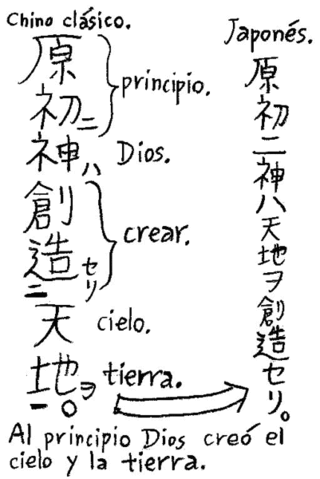 Chino clásico.
原初ニ神ハ創造セリ二天地ヲ一。
principio.
Dios.
crear.
cielo.
tierra.
Japonés.
原初二神ハ天地ヲ創造セリ。
Al principio Dios creó el
cielo y la tierra.